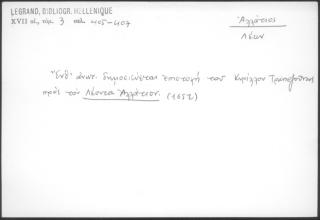 LEGRAND, BIBLIOGR. HELLENIQUE
XVII αἰ, τόμ. 3 σελ. 405-407
Ἀλλάτιος
Λέων
Ἔνθ' ἀνωτ. δημοσιεύεται ἐπιστολή του Κυρίλλου Τραπεζοῦντος
πρός τόν Λέοντα Ἀλλάτιον. (1652)